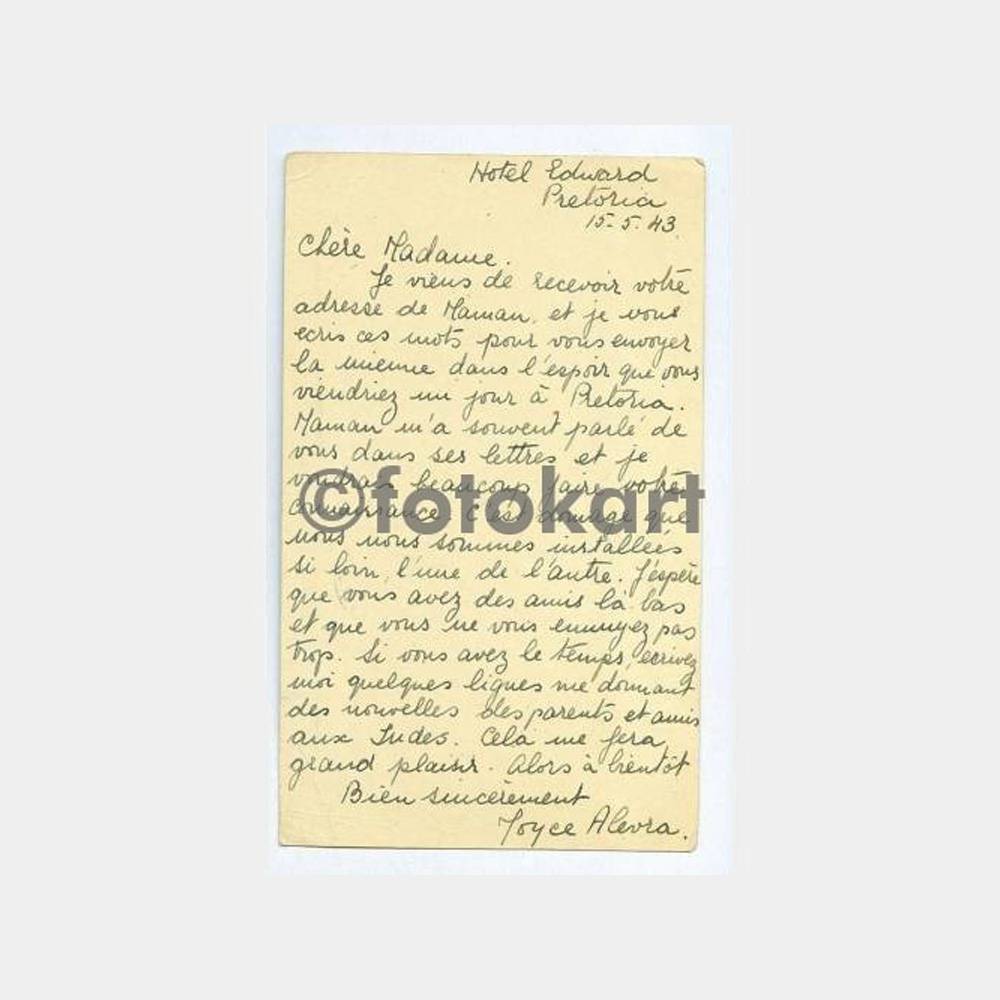 Hotel Edward
Pretoria
15-5.43.
Chère Madame.
Je viens de recevoir votre
adresse de Maman, et je vous
ecris ces mots pour vous envoyer
la mienne dans l'espoir que vous
viendriez un jour à Pretoria.
Maman m'a souvent parlé de
vous dans ses lettres et je
voudrais beaucoup faire votre
©fotokart
connaissance. C'est domage que
nous nous sommes installées
si loin, l'une de l'autre. J'éspère
que vous avez des amis là bas
et que vous ne vous ennuyez pas
trop. Si vous avez le temps, écrivez
moi quelques lignes me donnant
des nouvelles des parents et amis
aux Indes. Celà me fera
grand plaisir. Alors à bientôt
Bien sincèrement
Joyce Alevra.